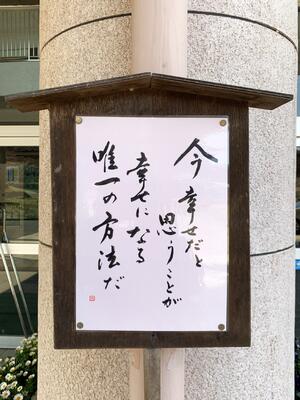 今 幸せだと
思うことが
幸せになる
唯一の方法だ